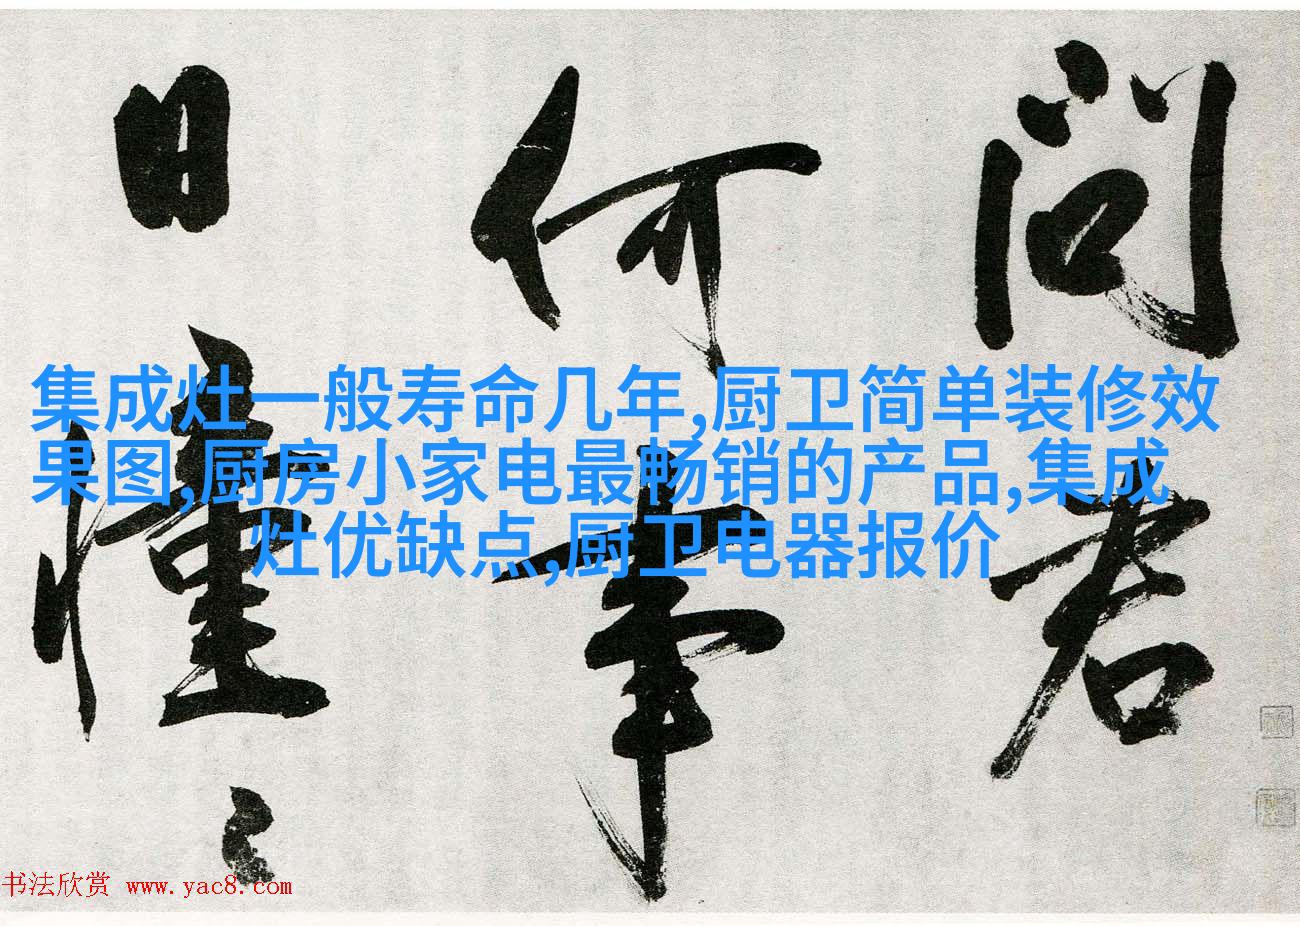 問君
何事
日憧〻
集成灶一般寿命几年,厨卫简单装修效
果图,厨房小家电最畅销的产品,集成
灶优缺点,厨卫电器报价
书法欣赏 www.yac8.com